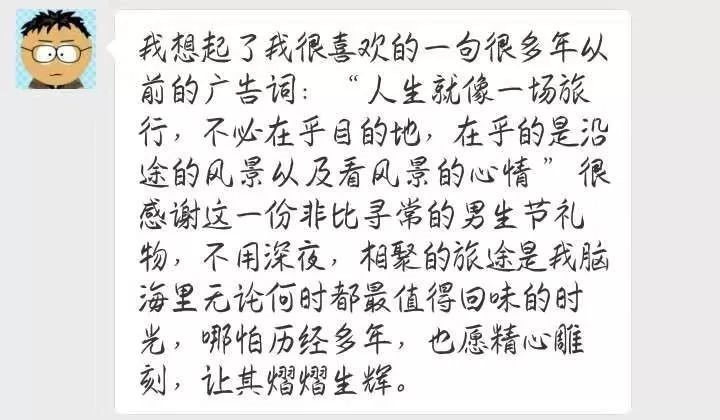 我想起了我很喜欢的一句很多年以
前的广告词：“人生就像一场旅
行，不必在乎目的地，在乎的是沿
途的风景以及看风景的心情”很
感谢这一份非比寻常的男生节礼
物，不用深夜，相聚的旅途是我脑
海里无论何时都最值得回味的时
光，哪怕历经多年，也愿精心雕
刻，让其熠熠生辉。